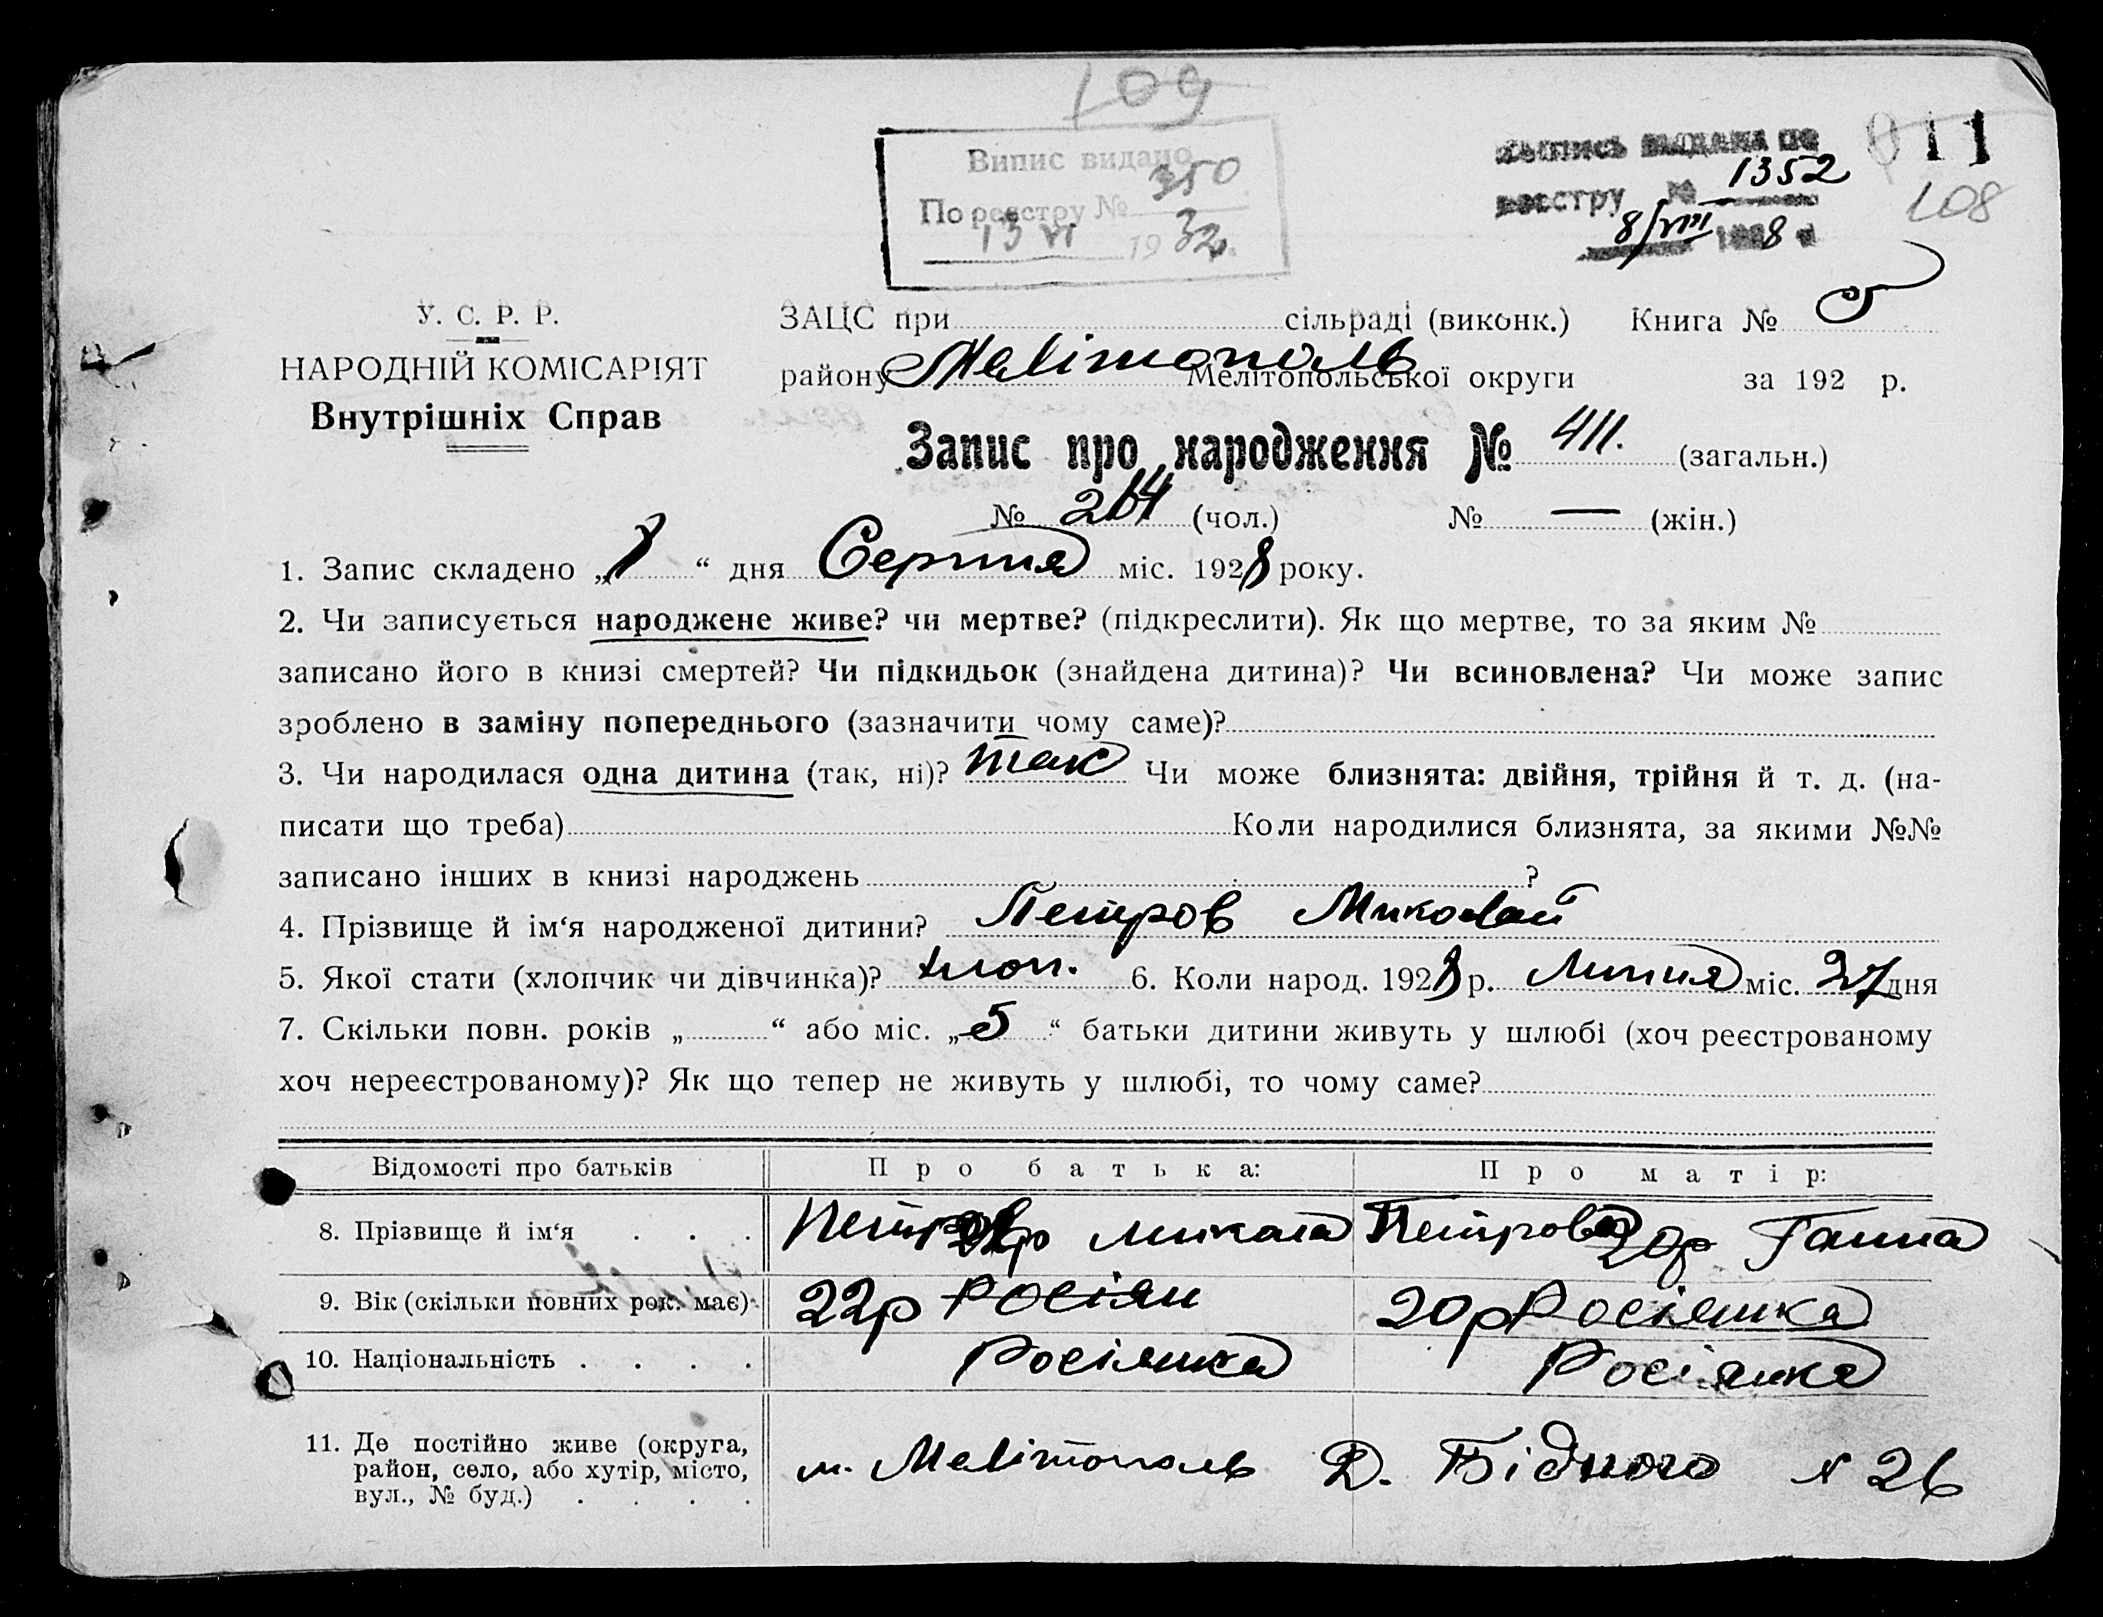 109
Випис видано
По реєстру № 350
13 VI 1932 р.
запись выдана по
реестру № 1352
8/VIII 1928 г
011
108
У. С. Р. Р.
НАРОДНІЙ КОМІСАРІЯТ
Внутрішніх Справ
ЗАЦС при сільраді (виконк.) Книга № 5
району Мелітополь Мелітопольської округи за 192 р.
Запис про народження № 411. (загальн.)
№ 214 (чол.) № — (жін.)
1. Запис складено „8“ дня Серпня міс. 1928 року.
2. Чи записується народжене живе? чи мертве? (підкреслити). Як що мертве, то за яким №
записано його в книзі смертей? Чи підкидьок (знайдена дитина)? Чи всиновлена? Чи може запис
зроблено в заміну попереднього (зазначити чому саме)?
3. Чи народилася одна дитина (так, ні)? так Чи може близнята: двійня, трійня й т. д. (на-
писати що треба) Коли народилися близнята, за якими №№
записано інших в книзі народжень ?
4. Прізвище й ім‘я народженої дитини? Петров Миколай
5. Якої стати (хлопчик чи дівчинка)? хлоп. 6. Коли народ. 1928 р. Липня міс. 27 дня
7. Скільки повн. років „ “ або міс. „5“ батьки дитини живуть у шлюбі (хоч реєстрованому
хоч нереєстрованому)? Як що тепер не живуть у шлюбі, то чому саме?
Відомості про батьків Про батька: Про матір:
8. Прізвище й ім‘я . . . Петров 22р Микола Петрова 20р Ганна
9. Вік (скільки повних рок. має) 22р Росіян 20р Росіянка
10. Національність . . . . Росіянка Росіянка
11. Де постійно живе (округа,
район, село, або хутір, місто,
вул., № буд.) . . . . м. Мелітополь Д. Бідного № 26